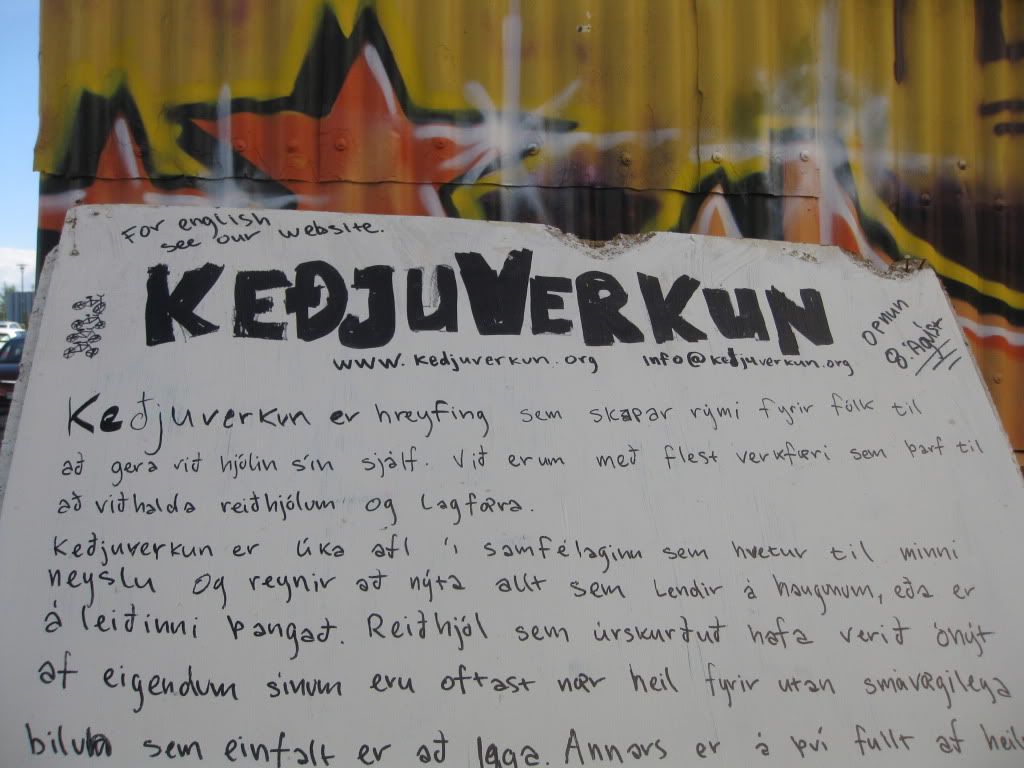 For english
see our website.
KEÐJUVERKUN
www.keðjuverkun.org info@keðjuverkun.org
opnun
8. Ágúst
Keðjuverkun er hreyfing sem skapar rými fyrir fólk til
að gera við hjólin sín sjálf. Við erum með flest verkfæri sem þarf til
að viðhalda reiðhjólum og Lagfæra.
Keðjuverkun er líka afl í samfélaginu sem hvetur til minni
neyslu og reynir að nýta allt sem Lendir á haugunum, eða er
á leiðinni þangað. Reiðhjól sem úrskurðuð hafa verið ónýt
af eigendum sínum eru oftast nær heil fyrir utan smávægilega
bilun sem einfalt er að laga. Annars er á því fullt af heil